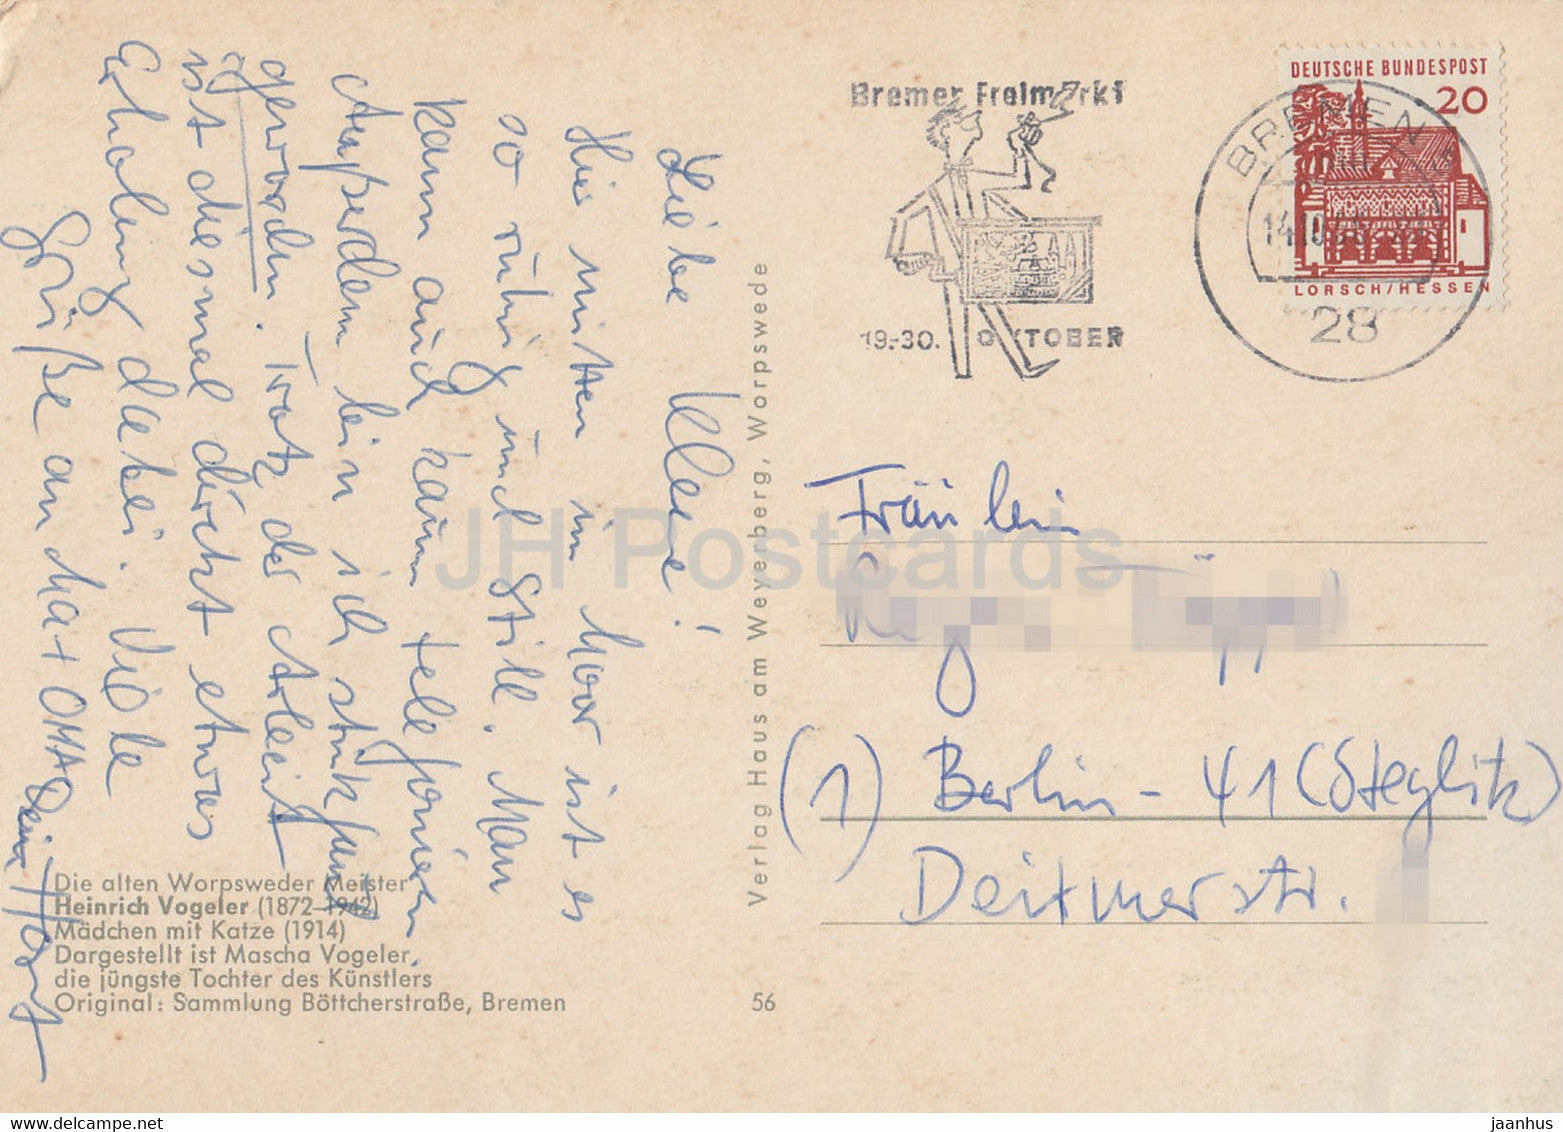 Liebe Kleine!
Hier mitten im Moor ist es
so ruhig und still. Man
kann auch kaum telefonieren.
Außerdem bin ich
geworden. Trotz der Arbeit
ist diesmal direkt etwas
Erholung dabei. Viele
Grüße an Mat OMA
Dein Horst
Die alten Worpsweder Meister
Heinrich Vogeler (1872–1942)
Mädchen mit Katze (1914)
Dargestellt ist Mascha Vogeler,
die jüngste Tochter des Künstlers
Original: Sammlung Böttcherstraße, Bremen
56
Verlag Haus am Weyerberg, Worpswede
Bremer Freimarkt
19.-30. OKTOBER
BREMEN
28
DEUTSCHE BUNDESPOST
20
LORSCH/HESSEN
Fräulein
(1) Berlin-41 (Steglitz)
Deitmerstr.
JH Postcards
www.delcampe.net
jaanhus